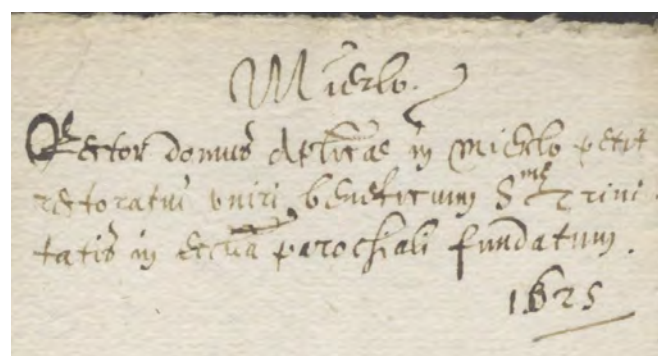 Mierlo.
Rector domus Aplicae in Mierlo petit
rectoratui uniri beneficium S.mae Trini
tatis in eccĩa parochiali fundatum.
1625